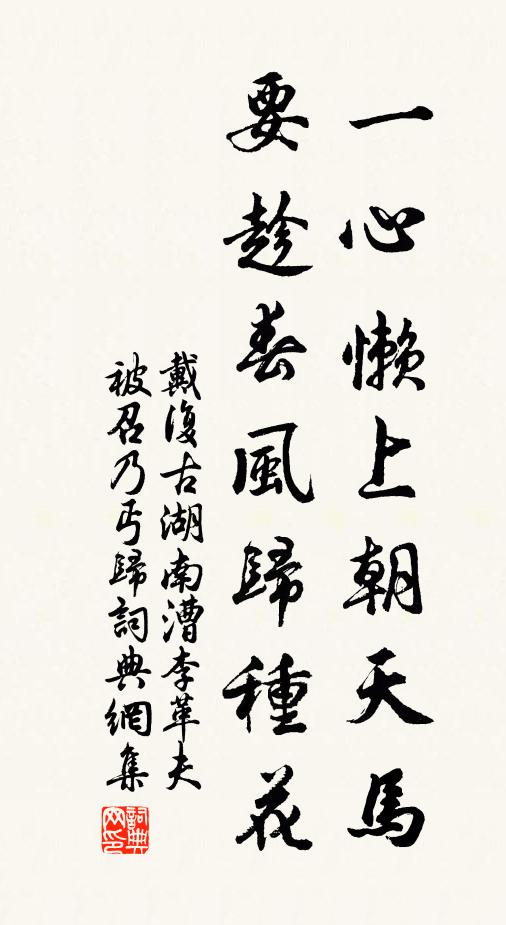 一心懶上朝天馬
要趁春風歸種花
戴復古湖南漕李華夫
被召乃丐歸詞典網集
詞典网印